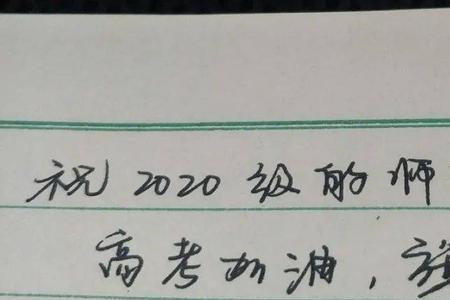 祝2020级的师
高考加油，